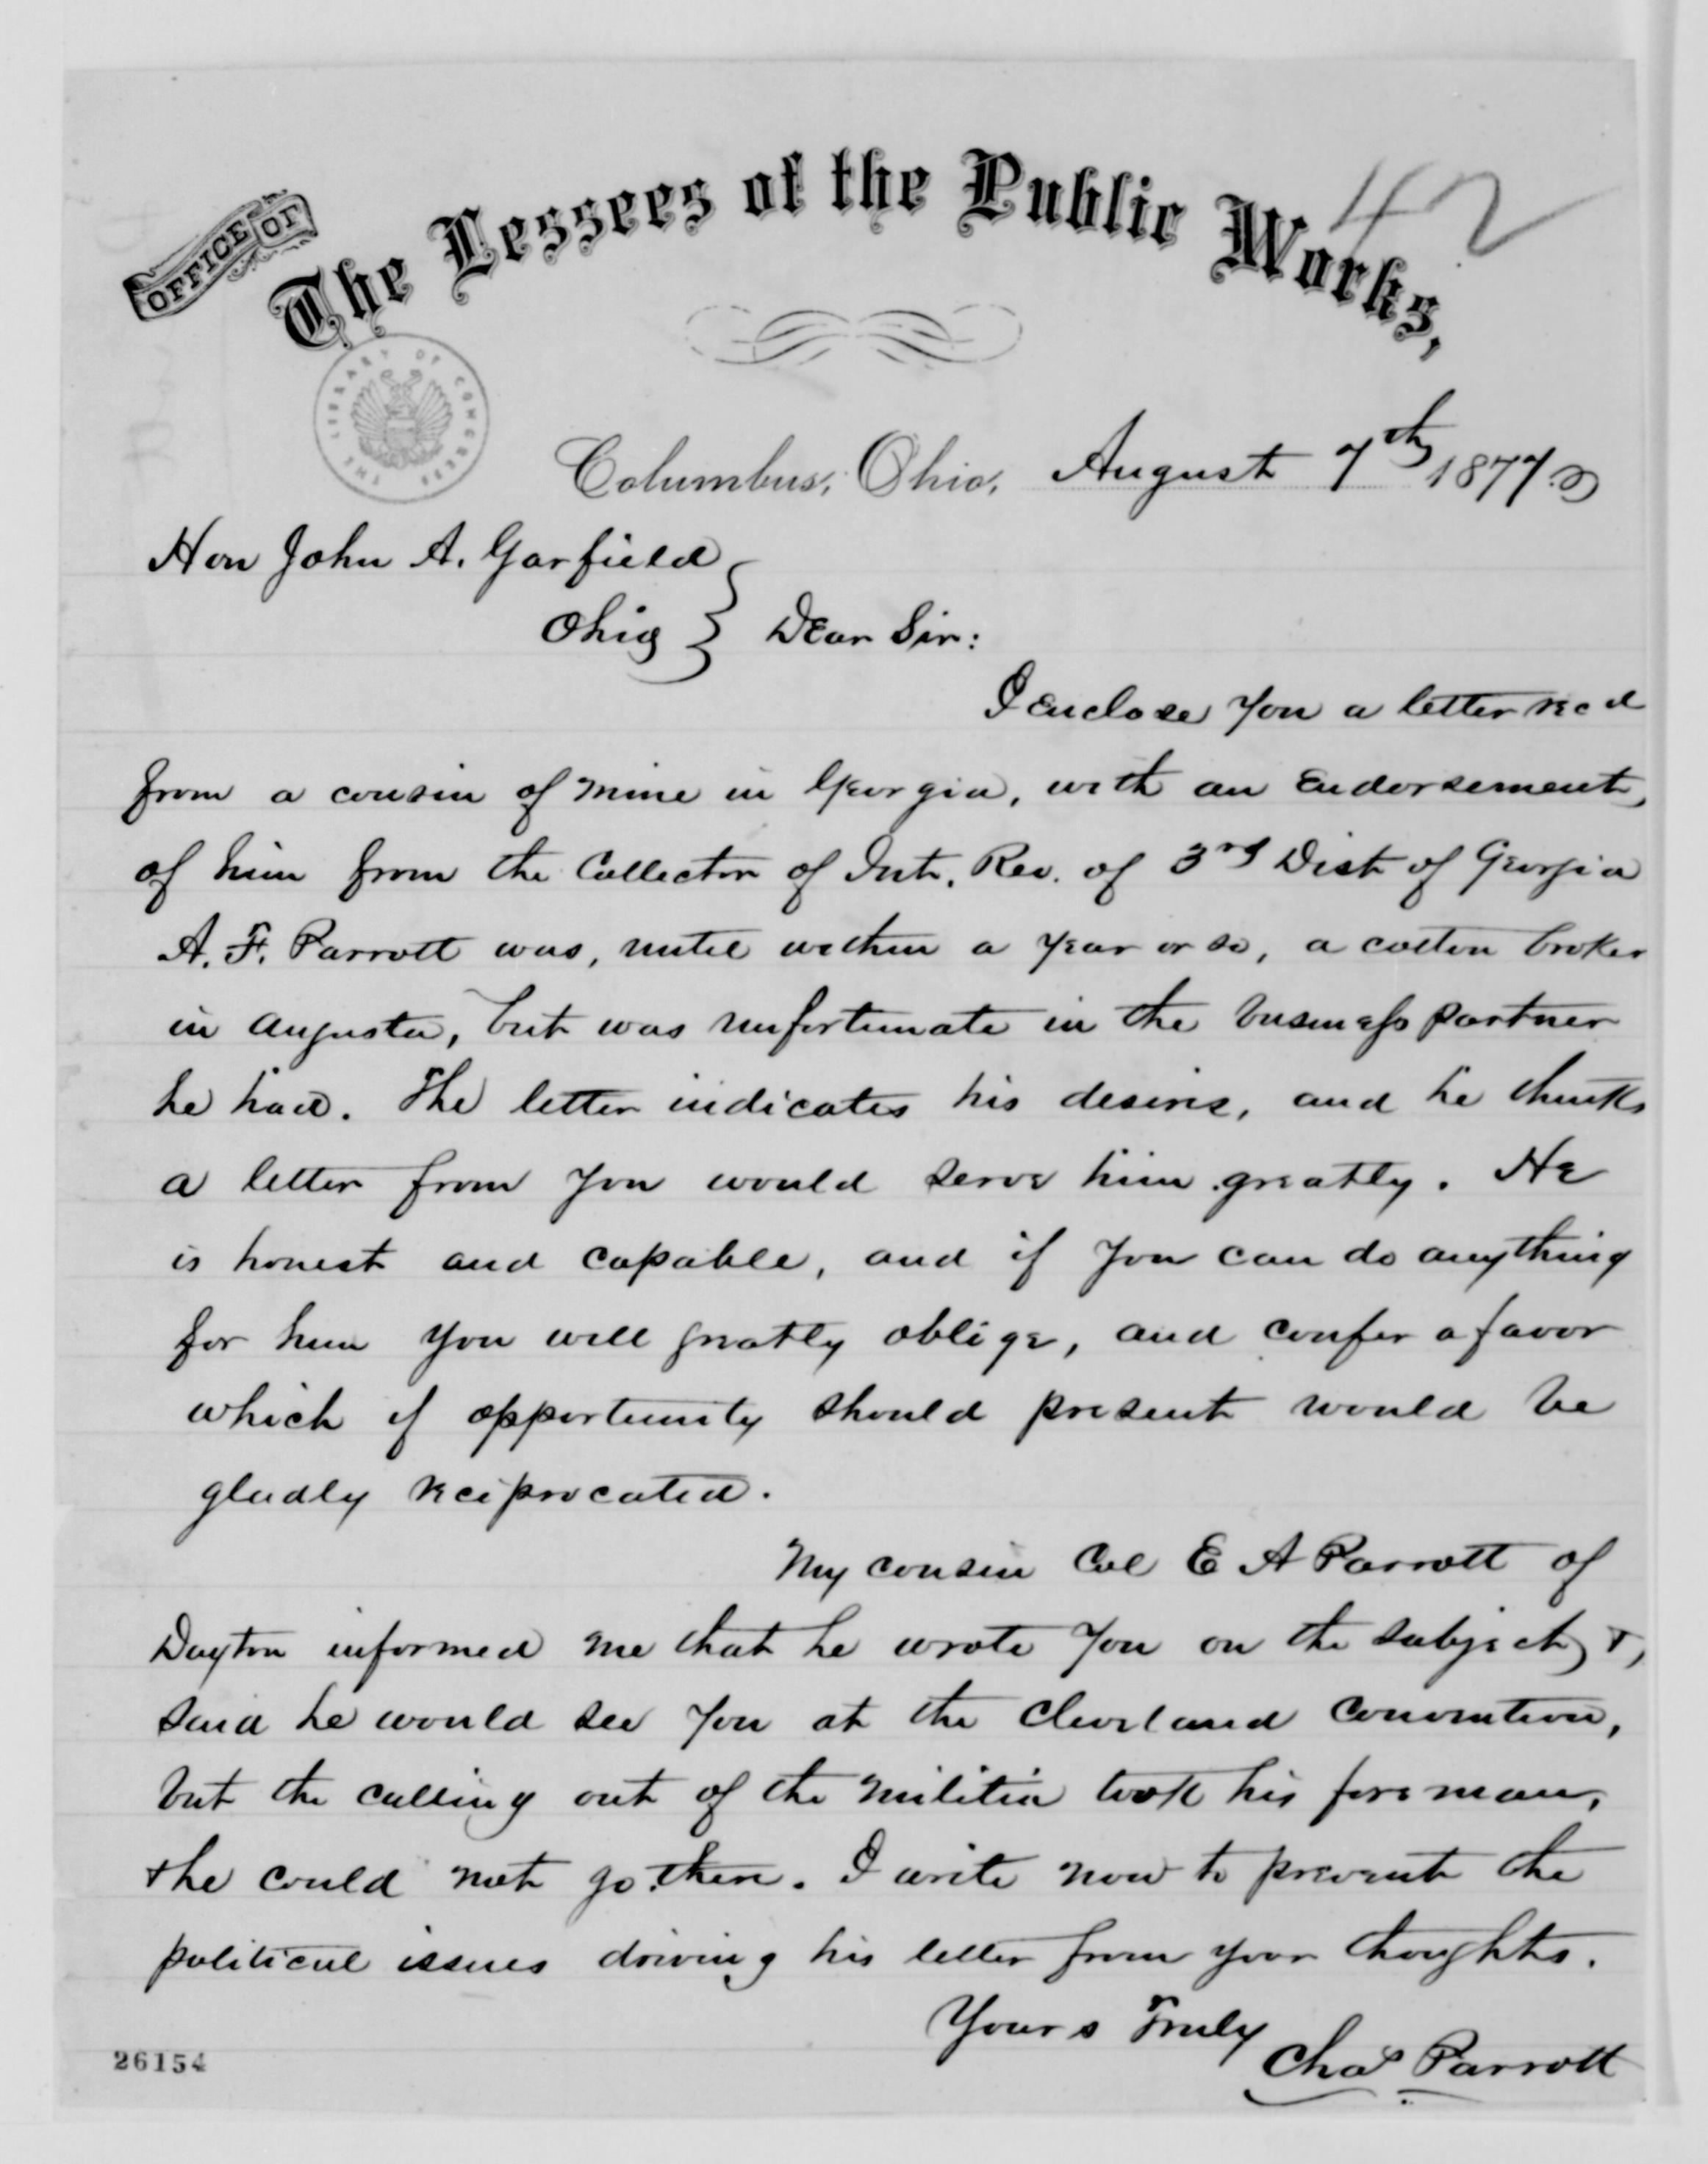 42
OFFICE OF
The Lessees of the Public Works,
THE LIBRARY OF CONGRESS
Columbus, Ohio, August 7th 1877
Hon John A. Garfield
Ohio } Dear Sir:
I Enclose You a letter recd
from a cousin of mine in Georgia, with an Endorsement,
of him from the Collector of Int. Rev. of 3rd Dist of Georgia
A. F. Parrott was, until within a year or so, a cotton broker
in Augusta, but was unfortunate in the business partner
he had. The letter indicates his desires, and he thinks
a letter from you would serve him greatly. He
is honest and capable, and if you can do anything
for him you will greatly oblige, and confer a favor
which if opportunity should present would be
gladly reciprocated.
My cousin Col E A Parrott of
Dayton informed me that he wrote you on the subject, &
said he would see you at the Cleveland Convention,
but the calling out of the militia took his foreman,
& he could not go there. I write now to prevent the
political issues driving his letter from your thoughts.
Yours Truly
Chas Parrott
26154